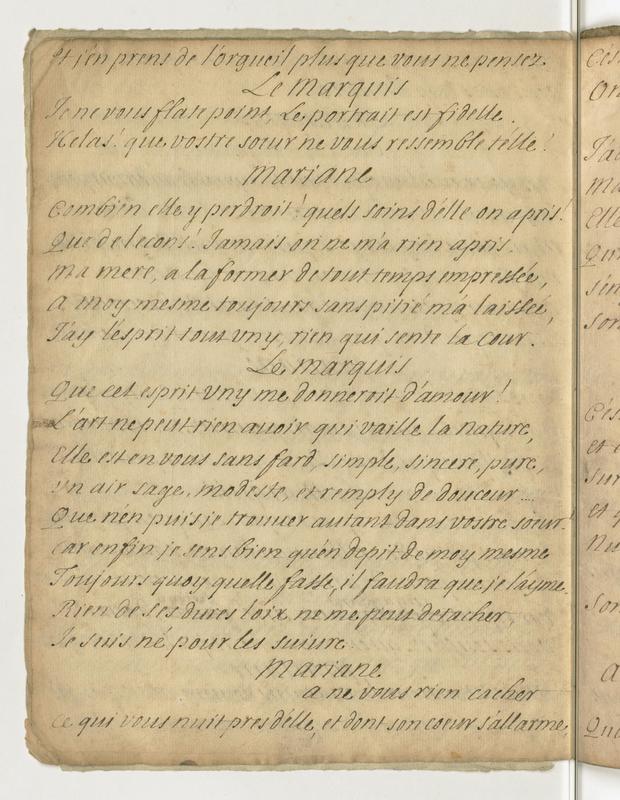 Et j'en prens de l'orgueil plus que vous ne pensez.
Le marquis
Je ne vous flate point, Le portrait est fidelle.
Helas! que vostre soeur ne vous ressemble t'elle!
Mariane
Combien elle y perdroit! quels soins d'elle on a pris!
Que de lecons! Jamais on ne m'a rien apris.
ma mere, a la former de tout temps empressée,
A moy mesme toujours sans pitié m'a laissée,
J'ay l'esprit tout vny, rien qui sente la cour.
Le marquis
Que cet esprit vny me donneroit d'amour!
L'art ne peut rien auoir qui vaille la nature,
Elle est en vous sans fard, simple, sincere, pure,
vn air sage, modeste, et remply de douceur ....
Que n'en puis je trouuer autant dans vostre soeur!
Car enfin je sens bien qu'en depit de moy mesme
Toujours quoy quelle fasse, il faudra que je l'ayme.
Rien de ses dures loix ne me peut detacher
Je suis né pour les suiure
Mariane
a ne vous rien cacher
Ce qui vous nuit pres d'elle, et dont son coeur s'allarme,
C'es
On
J'a
ma
Elle
Qu
s'en
son
C'es
et
sur
et
Nu
Son
a
Que